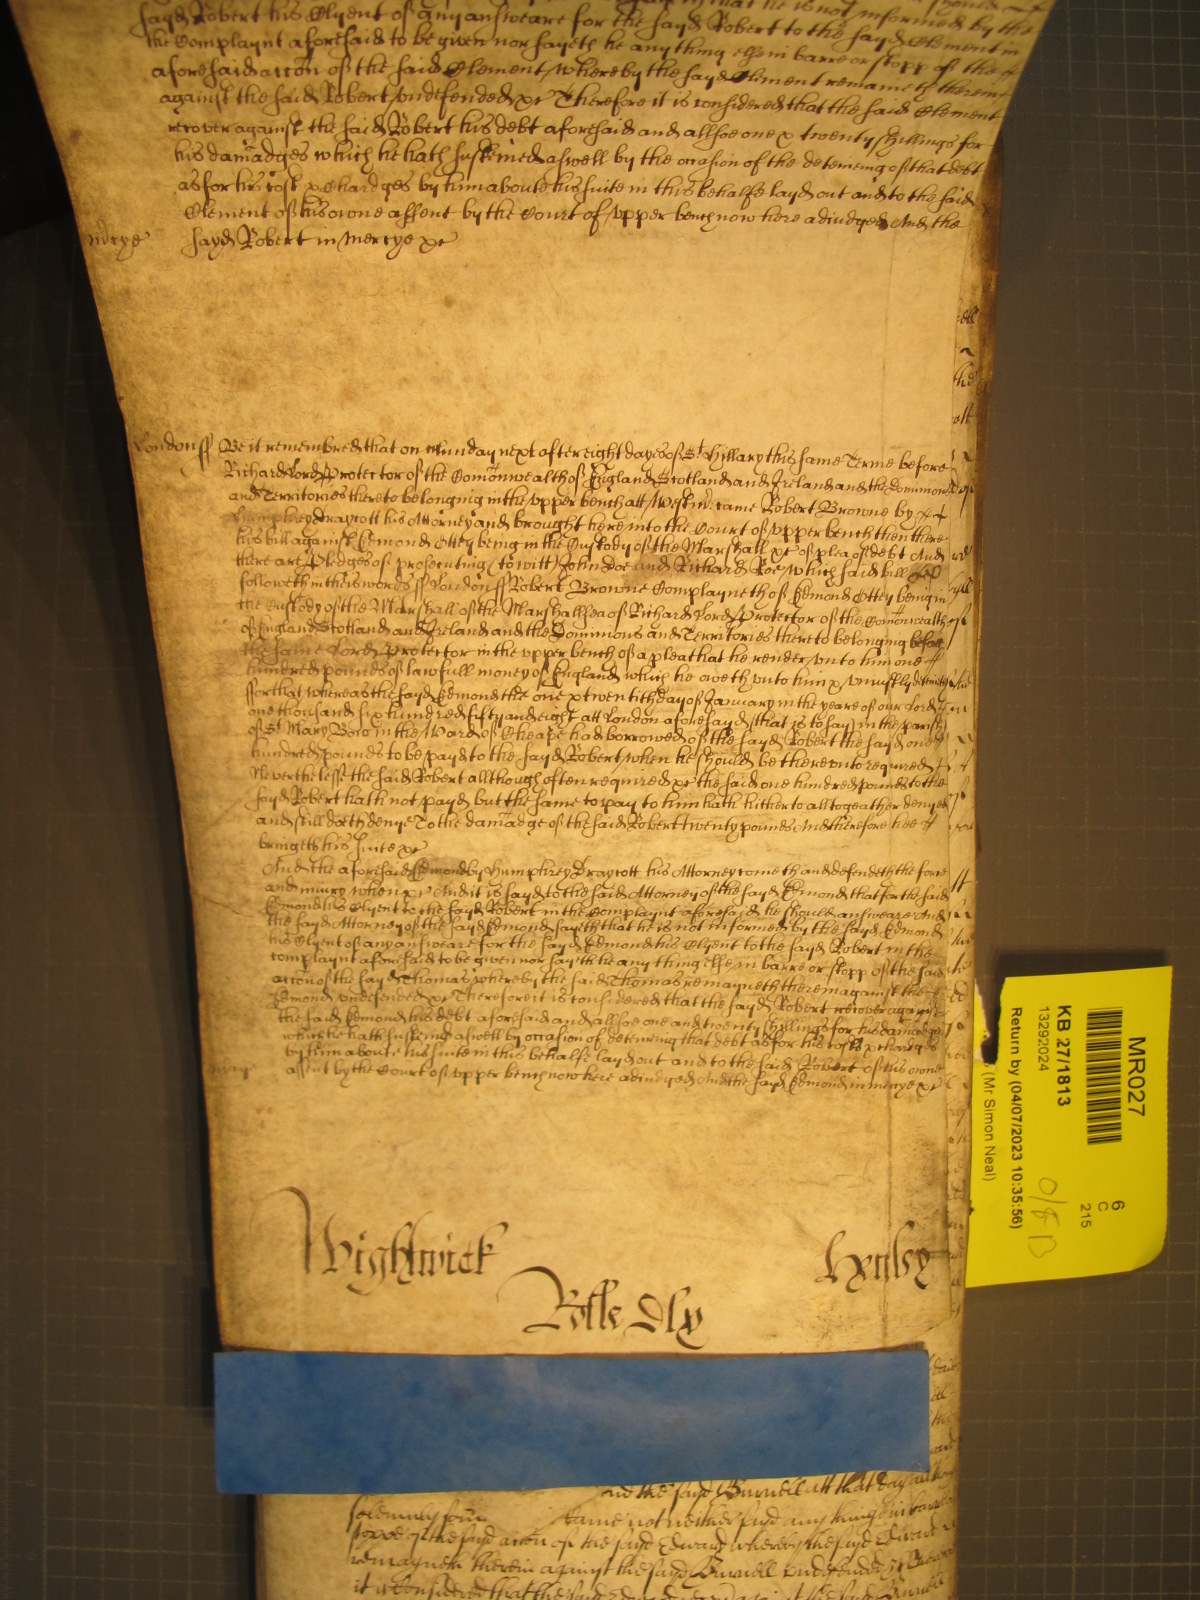 sayd Robert his Clyent of any answeare for the sayd Robert to the sayd Clement in
the Complaynt aforesaid to be given nor sayeth he any thing else in barre or stopp of the
aforesaid accon of the said Clement, whereby the sayd Clement remaineth therein
against the said Robert undefended &c Therefore it is considered that the said Clement
recover against the said Robert his debt aforesaid and allsoe one & twenty shillings for
his damadges which he hath susteined aswell by the occasion of the deteineing of that debt
as for his cost & Chardges by him about his suite in this behalfe layd out and to the said
Clement of his owne assent by the Court of upper bench now here adiudged And the
sayd Robert in Mercye &c
mercye
London ss Be it remembred that on Munday next after eight dayes of St Hillary this same Terme before
Richard Lord Protector of the Comonwealth of England Scotland and Ireland and the Dominions
and Territories thereto belonging in the upper bench att Westmr came Robert Browne by
Humphrey Draycott his Attorney and brought here into the Court of upper bench then there
his bill against Edmond Ottey being in the Custody of the Marshall &c of plea of debt And
there are Pledges of prosecuting (to witt) John Doe and Richard Roe, which said bill
followeth in theis words ss London ss Robert Browne Complayneth of Edmond Ottey being in
the Custody of the Marshall of the Marshallsea of Richard Lord Protector of the Comonwealth
of England Scotland and Ireland and the Dominions and Territories thereto belonging before
the same Lord Protector in the upper bench of a plea that he render unto him one
hundred pounds of lawfull money of England which he oweth unto him & uniustly deteineth
ffor that whereas the sayd Edmond the one & twentith day of January in the yeare of our Lord
one thousand six hundred fifty and eight att London aforesayd (that is to say) in the parish
of St Mary Bow in the Ward of Cheape had borrowed of the sayd Robert the sayd one
hundred pounds to be payd to the sayd Robert when he should be thereunto required
Neverthelesse the said Robert allthough often required &c the said one hundred pounds to the
sayd Robert hath not payd but the same to pay to him hath hitherto alltogeather denyed
and still doeth denye To the damadge of the said Robert twenty pounds And therefore hee
bringeth his suite &c
And the aforesaid Edmond by Humphrey Draycott his Attorney cometh and defendeth the force
and iniury when &c And it is sayd to the said Attorney of the sayd Edmond that for the said
Edmond his Clyent to the sayd Robert in the Complaynt aforesaid he should answeare And
the sayd Attorney of the sayd Edmond sayeth that he is not informed by the sayd Edmond
his Clyent of any answeare for the sayd Edmond his Clyent to the sayd Robert in the
complaynt aforesaid to be given nor sayeth he any thing else in barre or stopp of the said
accon of the sayd Thomas whereby the said Thomas remayneth therein against the
Edmond undefended &c Therefore it is considered that the sayd Robert recover against
the said Edmond his debt aforesaid and allsoe one and twenty shillings for his damadges
which he hath susteined aswell by occasion of deteineing that debt as for his costs & chardges
by him about his suite in this behalfe layd out and to the said Robert of his owne
assent by the Court of upper bench now here adiudged And the sayd Edmond in mercye &c
Wightwick
Rolle Dly
MR027
KB 27/1813
13292024
Return by (04/07/2023 10:35:56)
(Mr Simon Neal)
6
C
215
and the sayd Burnell att that day
solemnly came not neither sayd any thing in barre
stoppe of the sayd accon of the sayd Edward whereby the sayd Edward
remayneth therein against the sayd Burnell undefended &c Therefore
it is considered that the sayd